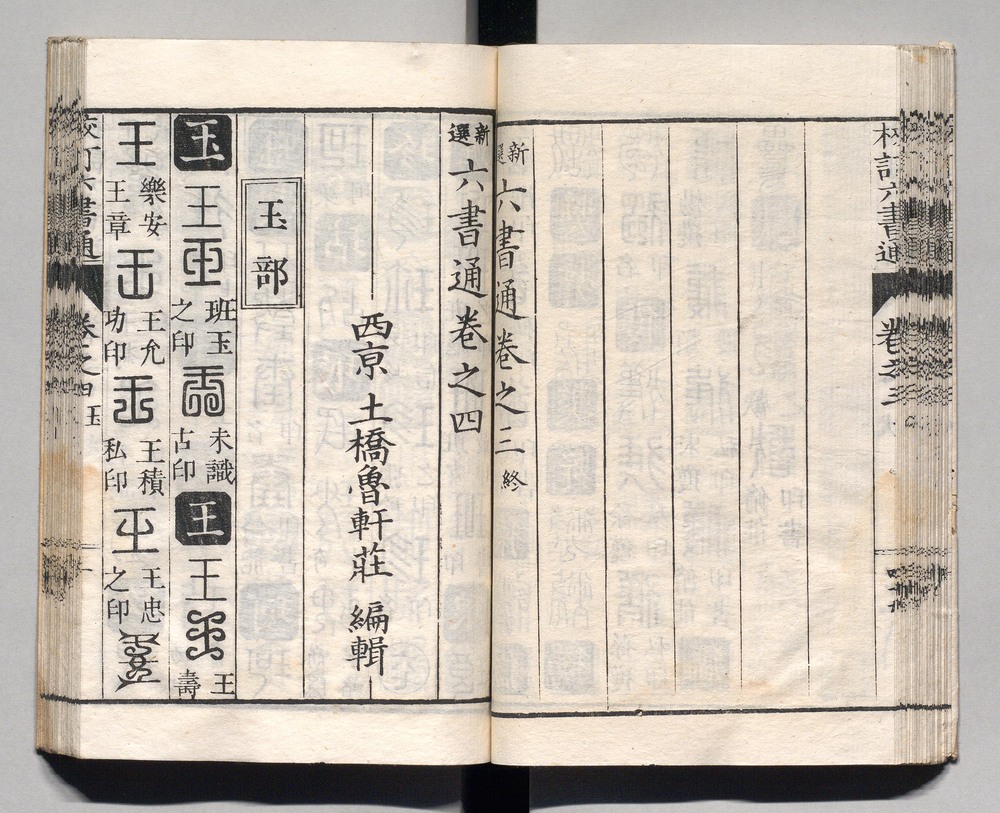 校訂六書通 卷之三
新選六書通卷之三 終
新選六書通卷之四
西京 土橋魯軒莊 編輯
玉部
玉 班玉之印 未識古印
王 王壽
樂安王章 王允功印 王積私印 王忠之印
校訂六書通 卷之四 玉